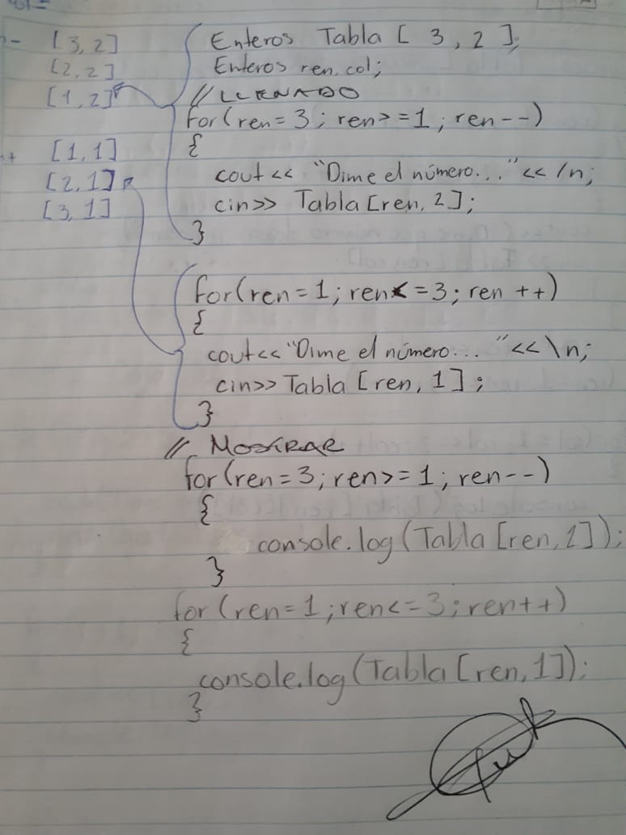 [3,2]
[2,2]
[1,2]
[1,1]
[2,1]
[3,1]
Enteros Tabla [ 3, 2 ];
Enteros ren.col;
// LLENADO
for(ren=3; ren>=1; ren--)
{
cout<< "Dime el número..."<< /n;
cin>> Tabla[ren, 2];
}
for(ren=1; ren<=3; ren ++)
{
cout<<"Dime el número... "<<\n;
cin>> Tabla [ren, 1];
}
// MOSTRAR
for(ren=3; ren>=1; ren--)
{
console.log(Tabla [ren, 2]);
}
for (ren=1; ren<=3; ren++)
{
console.log(Tabla [ren, 1]);
}